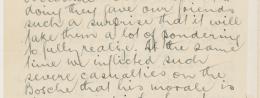 doing they gave our friends
such a surprise that it will
take them a lot of pondering
to fully realize. At the same
time we inflicted such
severe casualties on the
Bosche that his morale is